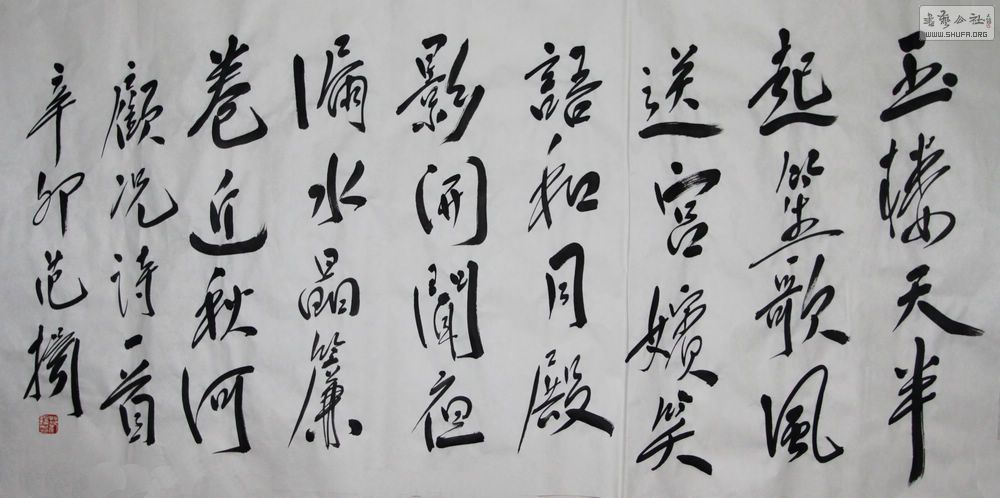 玉樓天半
起笙歌風
送宮嬪笑
語和月殿
影開聞夜
漏水晶簾
卷近秋河
顧況詩一首
辛卯范
書藝公社
WWW.SHUFA.ORG